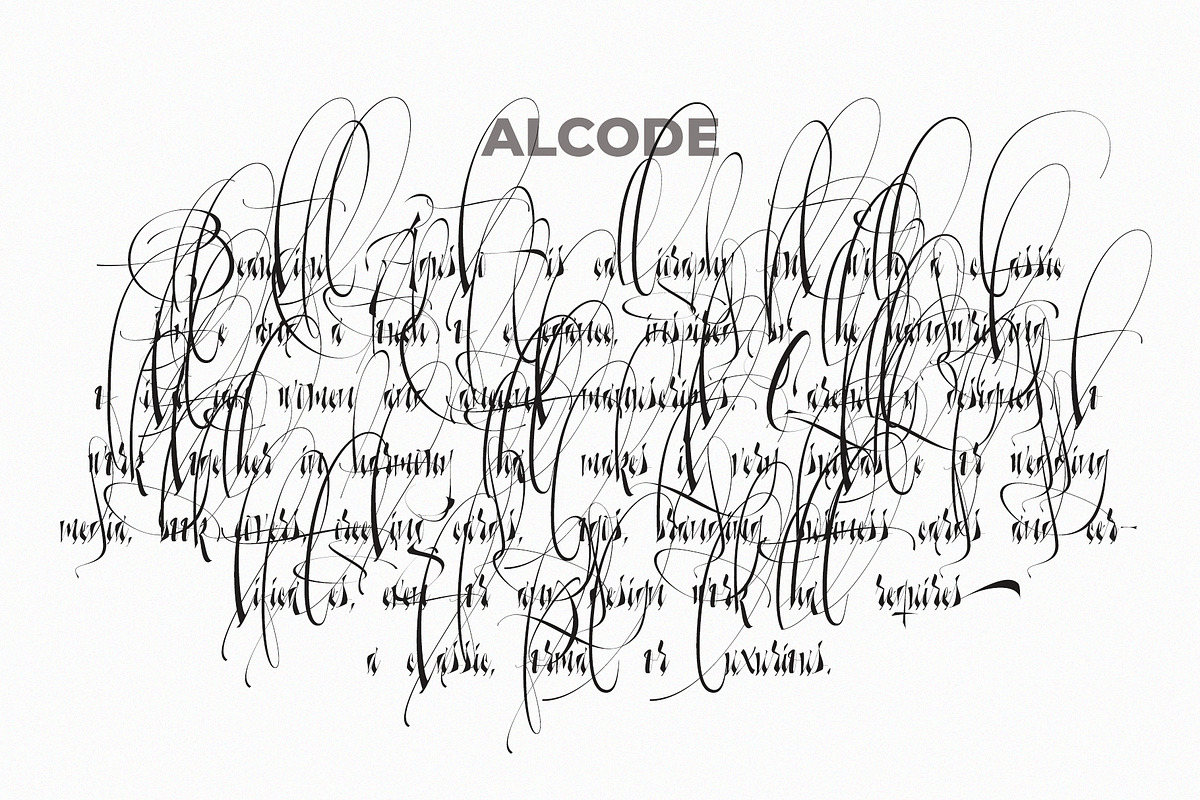 ALCODE
Beautiful Agnesia is calligraphy font with a classic
style and a touch of elegance, inspired by the handwriting
of italian women and ancient manuscripts. Carefully designed to
work together in harmony that makes it very suitable for wedding
media, book covers, greeting cards, logos, branding, business cards and cer-
tificates, even for any design work that requires
a classic, formal or luxurious.